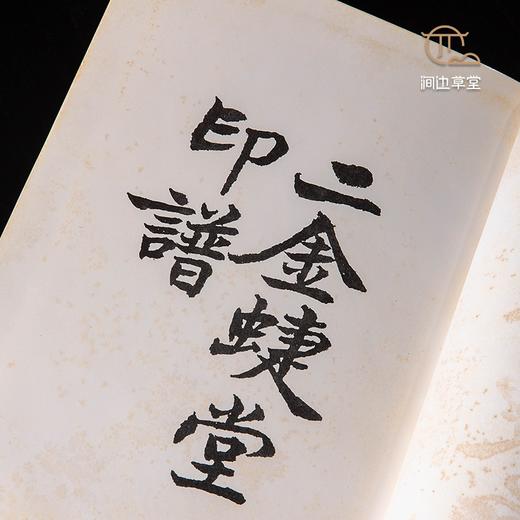 二金蜨堂
印譜
涧边草堂